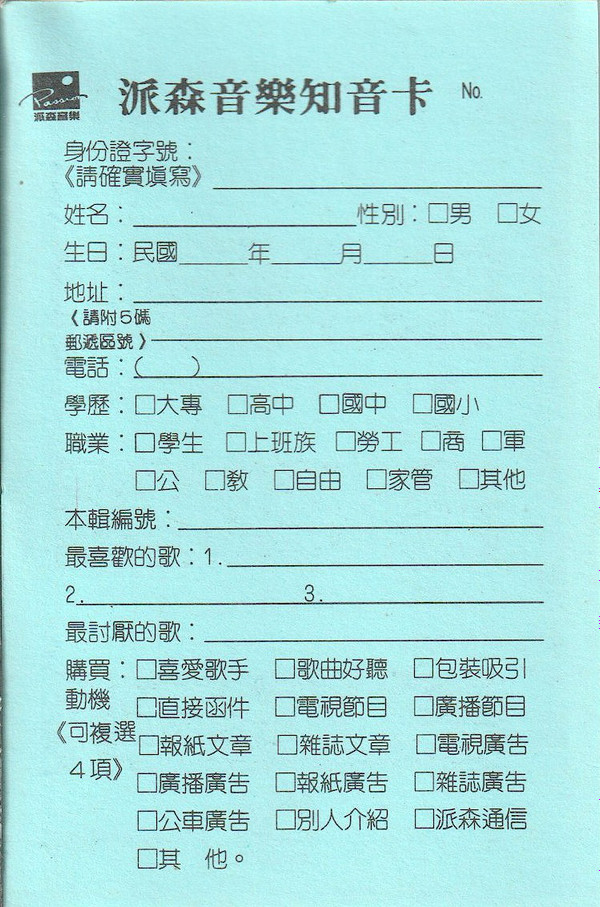 Passion
派森音樂
派森音樂知音卡 No.
身份證字號：
《請確實填寫》
姓名：　性別：□男 □女
生日：民國　年　月　日
地址：
〈請附5碼
郵遞區號〉
電話：(　)
學歷：□大專 □高中 □國中 □國小
職業：□學生 □上班族 □勞工 □商 □軍
□公 □教 □自由 □家管 □其他
本輯編號：
最喜歡的歌：1.
2.　3.
最討厭的歌：
購買：□喜愛歌手 □歌曲好聽 □包裝吸引
動機 □直接函件 □電視節目 □廣播節目
《可複選 □報紙文章 □雜誌文章 □電視廣告
4項》 □廣播廣告 □報紙廣告 □雜誌廣告
□公車廣告 □別人介紹 □派森通信
□其 他。